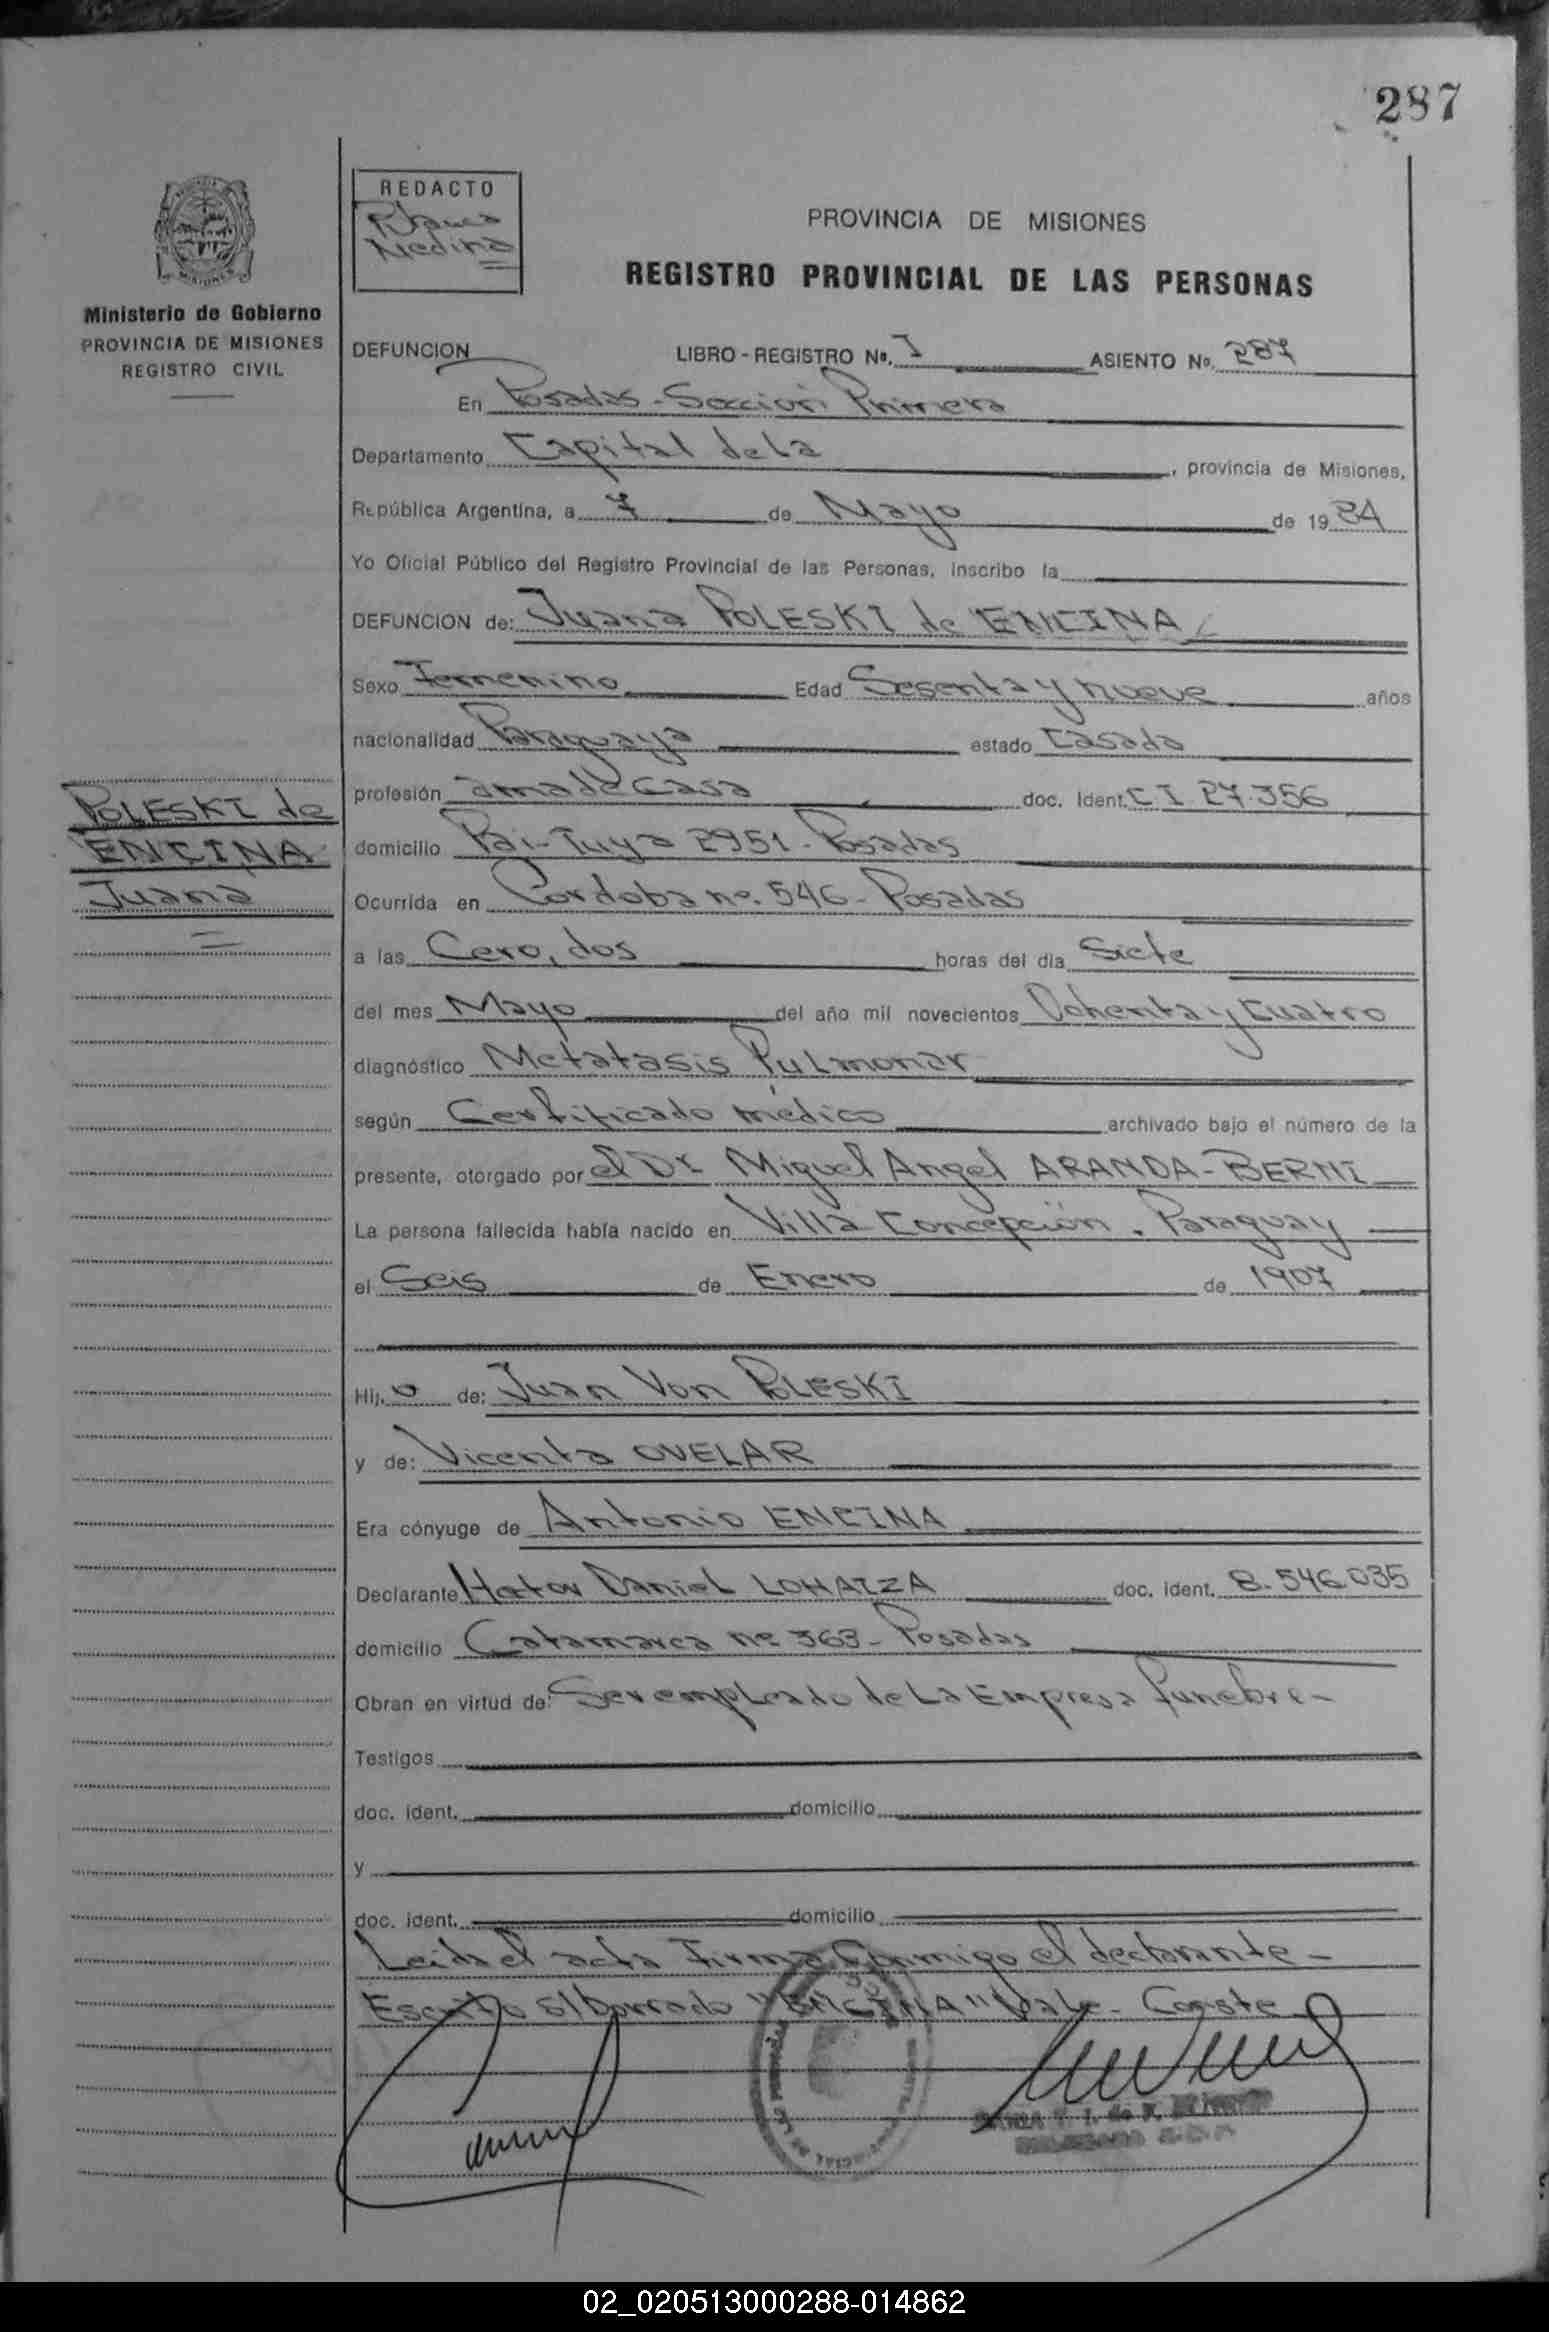 287
REDACTO
Medina
PROVINCIA DE MISIONES
REGISTRO PROVINCIAL DE LAS PERSONAS
Ministerio de Gobierno
PROVINCIA DE MISIONES
REGISTRO CIVIL
DEFUNCION LIBRO - REGISTRO Nº. I ASIENTO Nº. 287
En Posadas - Sección Primera
Departamento Capital de La, provincia de Misiones,
República Argentina, a 7 de Mayo de 1984
Yo Oficial Público del Registro Provincial de las Personas, inscribo la
DEFUNCION de: Juana POLESKI de ENCINA
Sexo Femenino Edad Sesenta y nueve años
nacionalidad Paraguaya estado Casada
profesión ama de casa doc. Ident. C I 27.356
POLESKI de
ENCINA
Juana
domicilio Pai-Tuya 2951 - Posadas
Ocurrida en Cordoba nº. 546 - Posadas
a las Cero, dos horas del día Siete
del mes Mayo del año mil novecientos Ochenta y Cuatro
diagnóstico Metatasis Pulmonar
según Certificado médico archivado bajo el número de la
presente, otorgado por el Dr Miguel Angel ARANDA-BERNI
La persona fallecida había nacido en Villa Concepción. Paraguay
el Seis de Enero de 1907
Hij a de: Juan Von POLESKI
y de: Vicenta OVELAR
Era cónyuge de Antonio ENCINA
Declarante Hector Daniel LOHAIZA doc. ident. 8.546.035
domicilio Catamarca nº 363 - Posadas
Obran en virtud de: Ser empleado de La Empresa funebre -
Testigos
doc. ident. domicilio
y
doc. ident. domicilio
Leida el acta Firma Conmigo el declarante -
Escrito s/borrado "ENCINA" Vale - Conste
02_020513000288-014862